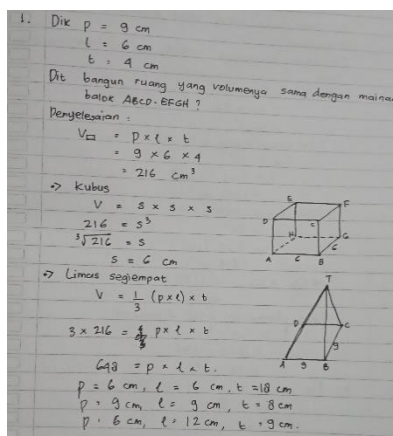 1. Dik p = 9 cm
l = 6 cm
t = 4 cm
Dit bangun ruang yang volumenya sama dengan mainan
balok ABCD.EFGH ?
Penyelesaian :
V▭ = p x l x t
= 9 x 6 x 4
= 216 cm³
=> Kubus
V = s x s x s
216 = s³
³√216 = s
s = 6 cm
E F
D C
H G
6
A 6 B
=> Limas segiempat
V = 1/3 (p x l) x t
3 x 216 = p x l x t
648 = p x l x t.
T
D C
9
A 9 B
p = 6 cm, l = 6 cm, t = 18 cm
p = 9 cm, l = 9 cm, t = 8 cm
p = 6 cm, l = 12 cm, t = 9 cm.